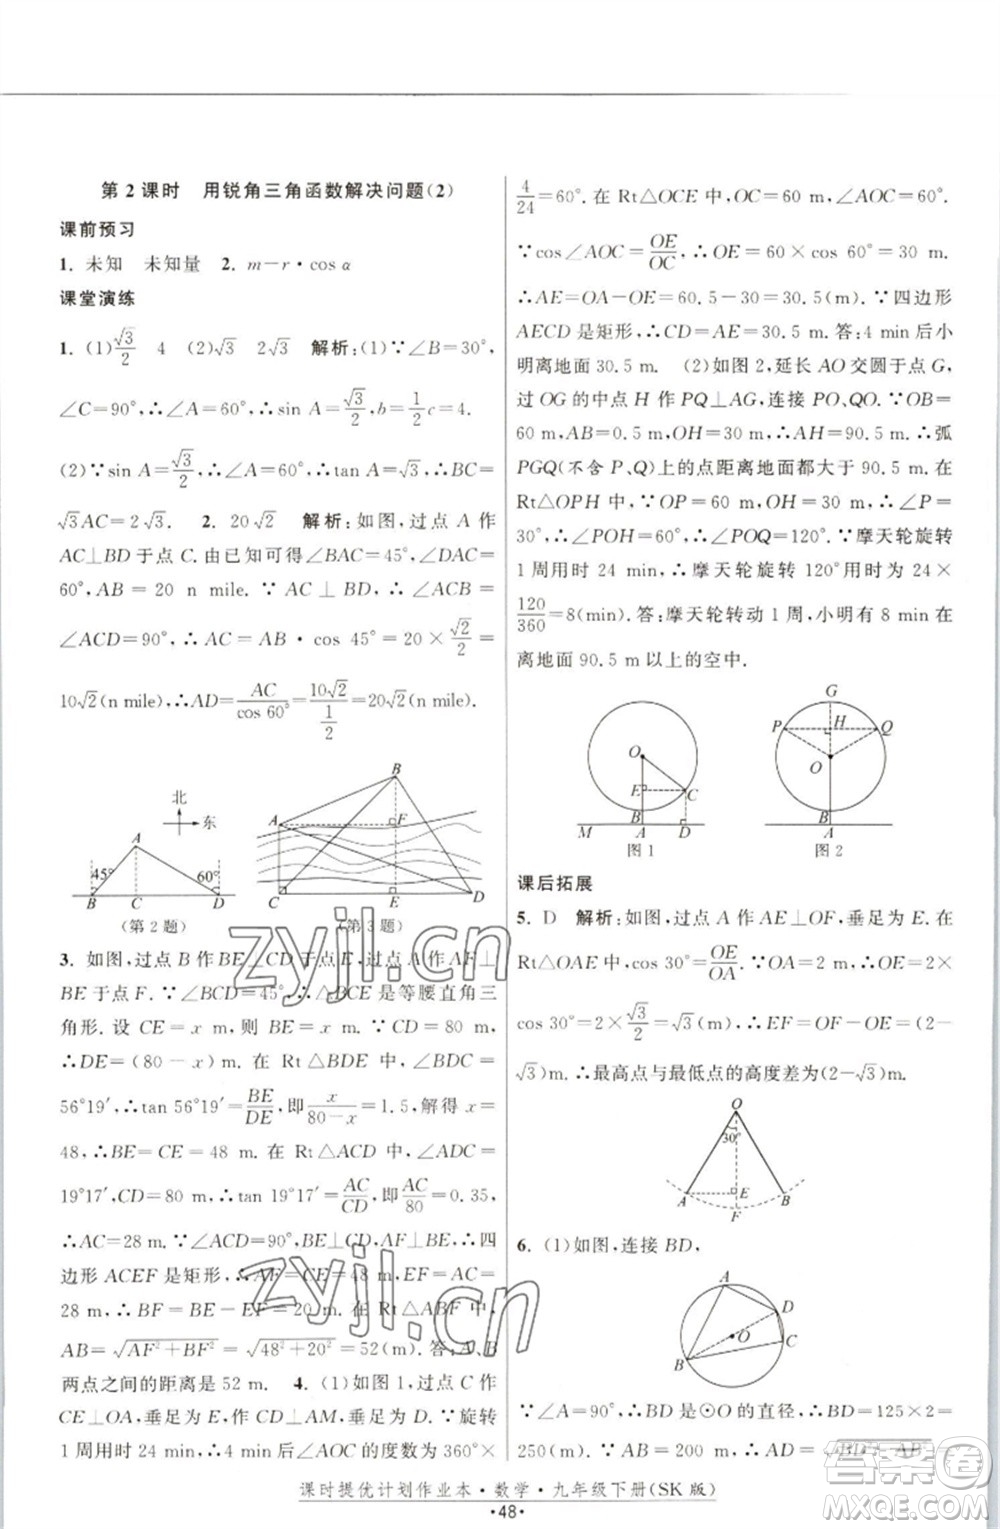 第2课时 用锐角三角函数解决问题(2)
课前预习
1. 未知 未知量 2. m－r·cos α
课堂演练
1. (1) √3/2 4 (2)√3 2√3 解析:(1)∵∠B=30°,
∠C=90°,∴∠A=60°,∴sin A=√3/2,b=1/2c=4.
(2)∵sin A=√3/2,∴∠A=60°,∴tan A=√3,∴BC=
√3AC=2√3. 2. 20√2 解析:如图,过点 A 作
AC⊥BD于点C.由已知可得∠BAC=45°,∠DAC=
60°,AB=20 n mile.∵AC⊥BD,∴∠ACB=
∠ACD=90°,∴AC=AB·cos 45°=20×√2/2=
10√2(n mile),∴AD=AC/cos 60°=10√2/(1/2)=20√2(n mile).
北
东
A
45°
60°
B C D
(第2题)
B
A
F
C E D
(第3题)
3. 如图,过点 B 作 BE⊥CD 于点 E,过点 A 作 AF⊥
BE于点F.∵∠BCD=45°,∴△BCE是等腰直角三
角形.设 CE=x m,则 BE=x m.∵CD=80 m,
∴DE=(80－x)m.在 Rt△BDE 中,∠BDC=
56°19′,∴tan 56°19′=BE/DE,即x/(80－x)=1.5,解得 x=
48,∴BE=CE=48 m.在 Rt△ACD 中,∠ADC=
19°17′,CD=80 m,∴tan 19°17′=AC/CD,即AC/80=0.35,
∴AC=28 m.∵∠ACD=∠BED=∠AFE=90°,∴四
边形 ACEF 是矩形,∴AF=CE=48 m,EF=AC=
28 m,∴BF=BE－EF=20 m.在 Rt△ABF 中,
AB=√(AF²+BF²)=√(48²+20²)=52(m).答:A、B
两点之间的距离是 52 m. 4. (1)如图1,过点 C 作
CE⊥OA,垂足为 E,作 CD⊥AM,垂足为 D.∵旋转
1周用时24 min,∴4 min后∠AOC的度数为360°×
4/24=60°.在 Rt△OCE 中,∠AOC=60°,OC=60 m.
∵cos∠AOC=OE/OC,∴OE=60×cos 60°=30 m.
∴AE=OA－OE=60.5－30=30.5(m).∵四边形
AECD是矩形,∴CD=AE=30.5 m.答:4 min后小
明离地面30.5 m. (2)如图2,延长AO交圆于点G,
过OG的中点 H 作 PQ⊥AG,连接 PO、QO.∵OB=
60 m,AB=0.5 m,OH=30 m,∴AH=90.5 m.∴弧
PGQ(不含 P、Q)上的点距离地面都大于90.5 m.在
Rt△OPH 中,∵OP=60 m,OH=30 m,∴∠P=
30°,∴∠POH=60°,∴∠POQ=120°.∵摩天轮旋转
1周用时 24 min,∴摩天轮旋转 120°用时为 24×
120/360=8(min).答:摩天轮转动1周,小明有8 min在
离地面90.5 m以上的空中.
O
E C
B
M A D
图1
G
P H Q
O
B
A
图2
课后拓展
5. D 解析:如图,过点 A 作 AE⊥OF,垂足为 E.在
Rt△OAE 中,cos 30°=OE/OA.∵OA=2 m,∴OE=2×
cos 30°=2×√3/2=√3(m),∴EF=OF－OE=(2－
√3)m.∴最高点与最低点的高度差为(2－√3)m.
O
30°
A E B
F
6. (1)如图,连接 BD,
A
D
O
C
B
∵∠A=90°,∴BD是⊙O的直径,∴BD=125×2=
250(m).∵AB=200 m,∴AD=
课时提优计划作业本·数学·九年级下册(SK 版)
·48·
zyjl.cn
zyjl.cn
作业精灵